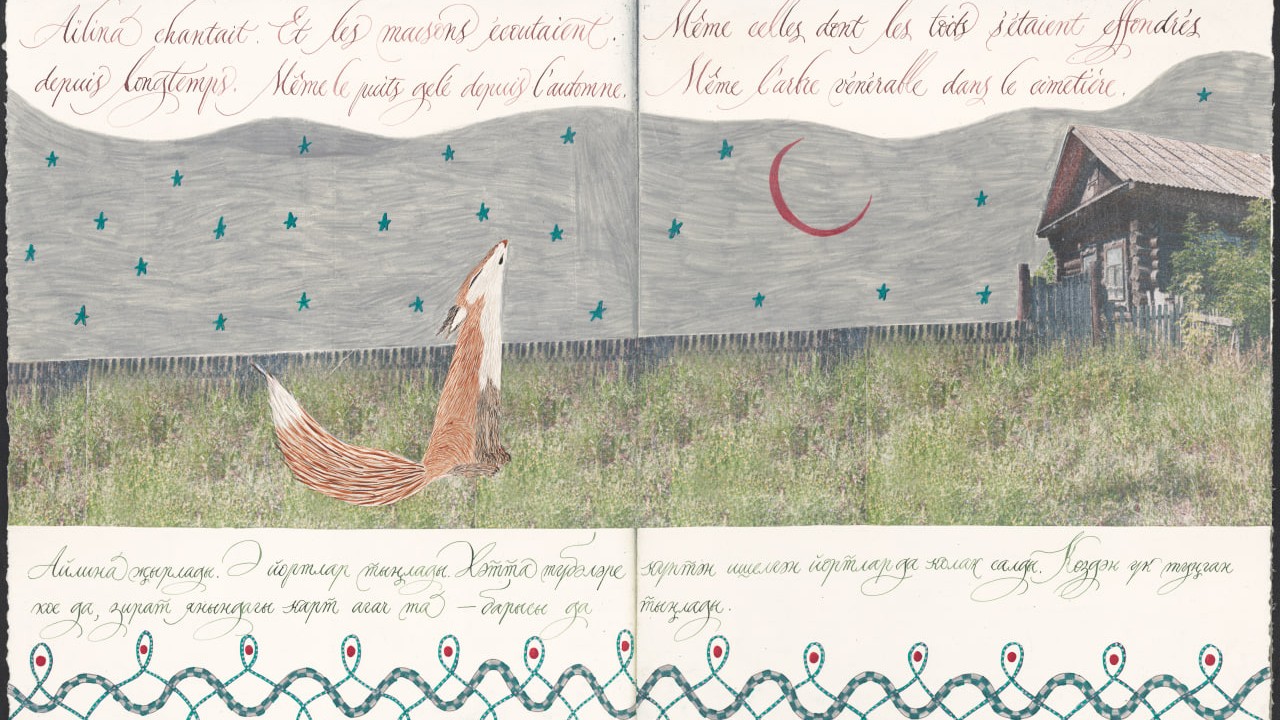 Aïlina chantait. Et les maisons écoutaient. Même celles dont les toits s'étaient effondrés
depuis longtemps. Même le puits gelé depuis l'automne. Même l'arbre vénérable dans le cimetière.
Айлина җырлады. Ә йортлар тыңлады. Хәтта түбәләре күптән ишелгән йортлар да колак салды. Көздән үк туңган
кое да, зират янындагы карт агач та – барысы да тыңлады.